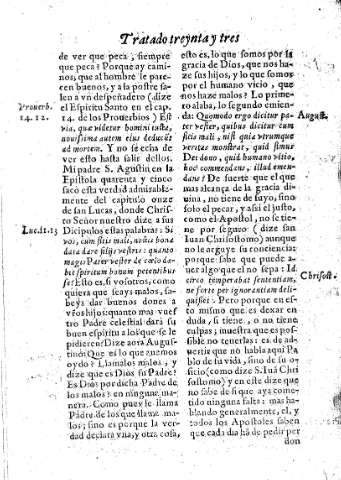 Tratado treynta y tres
de ver que peca, siempre
que peca? Porque ay cami-
nos, que al hombre le pare-
cen buenos, y a la postre sa-
len a vn despeñadero (dize
Prouerb.
el Espiritu Santo en el cap.
14. 12.
14. de los Prouerbios) Est
via, quæ videtur homini iusta,
nouissima autem eius deducūt
ad mortem. Y no se echa de
ver esto hasta salir dellos.
Mi padre S. Agustin, en la
Epistola quarenta y cinco
sacó esta verdad admirablemē
te del capitulo onze
de san Lucas, donde Chris-
to Señor nuestro dize a sus
Luc. 11. 13
Dicipulos estas palabras: Si
vos, cum sitis mali, nostis bona
data dare filijs vestris: quanto
magis Pater vester de cælo da-
bit spiritum bonum petentibus
se? Esto es, si vosotros, como
quiera que seays malos, sa-
beys dar buenos dones a
vr̃os hijos: quanto mas vues
tro Padre celestial dará su
buen espiritu a los que se le
pidieren? Dize aora Augus-
tino: Que es lo que auemos
oydo? Llamalos malos, y
dize que es Dios su Padre?
Es Dios por dicha Padre de
los malos? en ninguna ma-
nera. Como pues le llama
Padre de los que llama ma-
los; sino es porque la ver-
dad declara vna, y otra cosa,
esto es, lo que somos por la
gracia de Dios, que nos ha-
ze sus hijos, y lo que somos
por el humano vicio, que
nos haze malos? Lo prime-
ro alaba, lo segundo emien-
da: Quomodo ergo dicitur pa-
August.
ter vester, quibus dicitur cum
sitis mali, nisi quia vtrumque
veritas monstrat, quid simus
Dei dono, quid humano vitio,
hoc commendans, illud emen-
dans? De suerte que el que
mas alcança de la gracia di-
uina, no tiene de suyo, sino
solo el pecar, y assi el justo,
como el Apostol, no se tie-
ne por seguro (dize san
Iuan Chrisostomo) aunque
no le arguye la conciencia;
porque sabe que puede a-
uer algo que el no sepa: Id-
Chrisost.
circo temperabat sententiam,
ne forte per ignorantiam deli-
quisset: Pero porque en es-
to mismo que es dexar en
duda, si tiene, o no tiene
culpas; muestra que es posi-
ble no tenerlas: es de ad-
uertir que no habla aqui Pa
blo de su vida, sino de su o-
ficio (como dize S. Iuā Chri
sostomo) y en este dize que
no sabe de si que aya come-
tido ninguna falta: mas ha-
blando generalmente, el, y
todos los Apostoles saben
que cada dia hã de pedir per
don